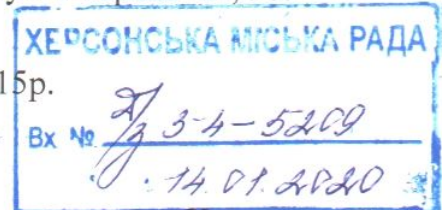 ХЕРСОНСЬКА МІСЬКА РАДА
15р.
Вх № 3-4-5209
14.01.2020